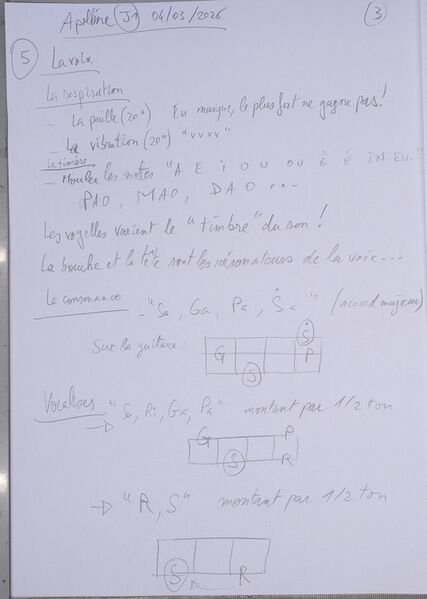 Apolline J1 04/03/2026
3
5 La voix
La respiration
- La paille (20") En musique, le plus fort ne gagne pas!
- La vibration (20") "vvvv"
Le timbre
- Mouler les notes "A E I O U OU È É IN EU..."
PAO, MAO, DAO ...
Les voyelles varient le "timbre" du son!
La bouche et la tête sont les résonateurs de la voix...
La consonance - "Sa, Ga, Pa, Ṡa" (Accord majeur)
Sur la guitare:
Ṡ
G P
S
Vocalises "Sa, Ri, Ga, Pa" montant par 1/2 ton
G P
S R
→ "R, S" montant par 1/2 ton
S R